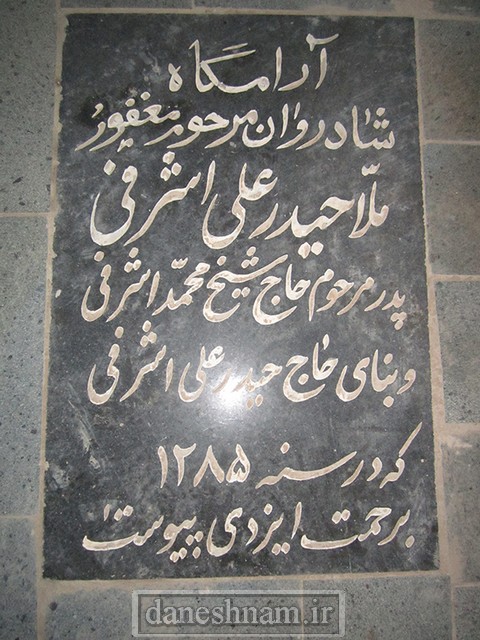 آرامگاه
شادروان مرحوم مغفور
ملّا حیدر علی اشرفی
پدر مرحوم حاج شیخ محمّد اشرفی
و بنای حاج حیدر علی اشرفی
که در سنه ۱۲۸۵
برحمت ایزدی پیوست
daneshnam.ir